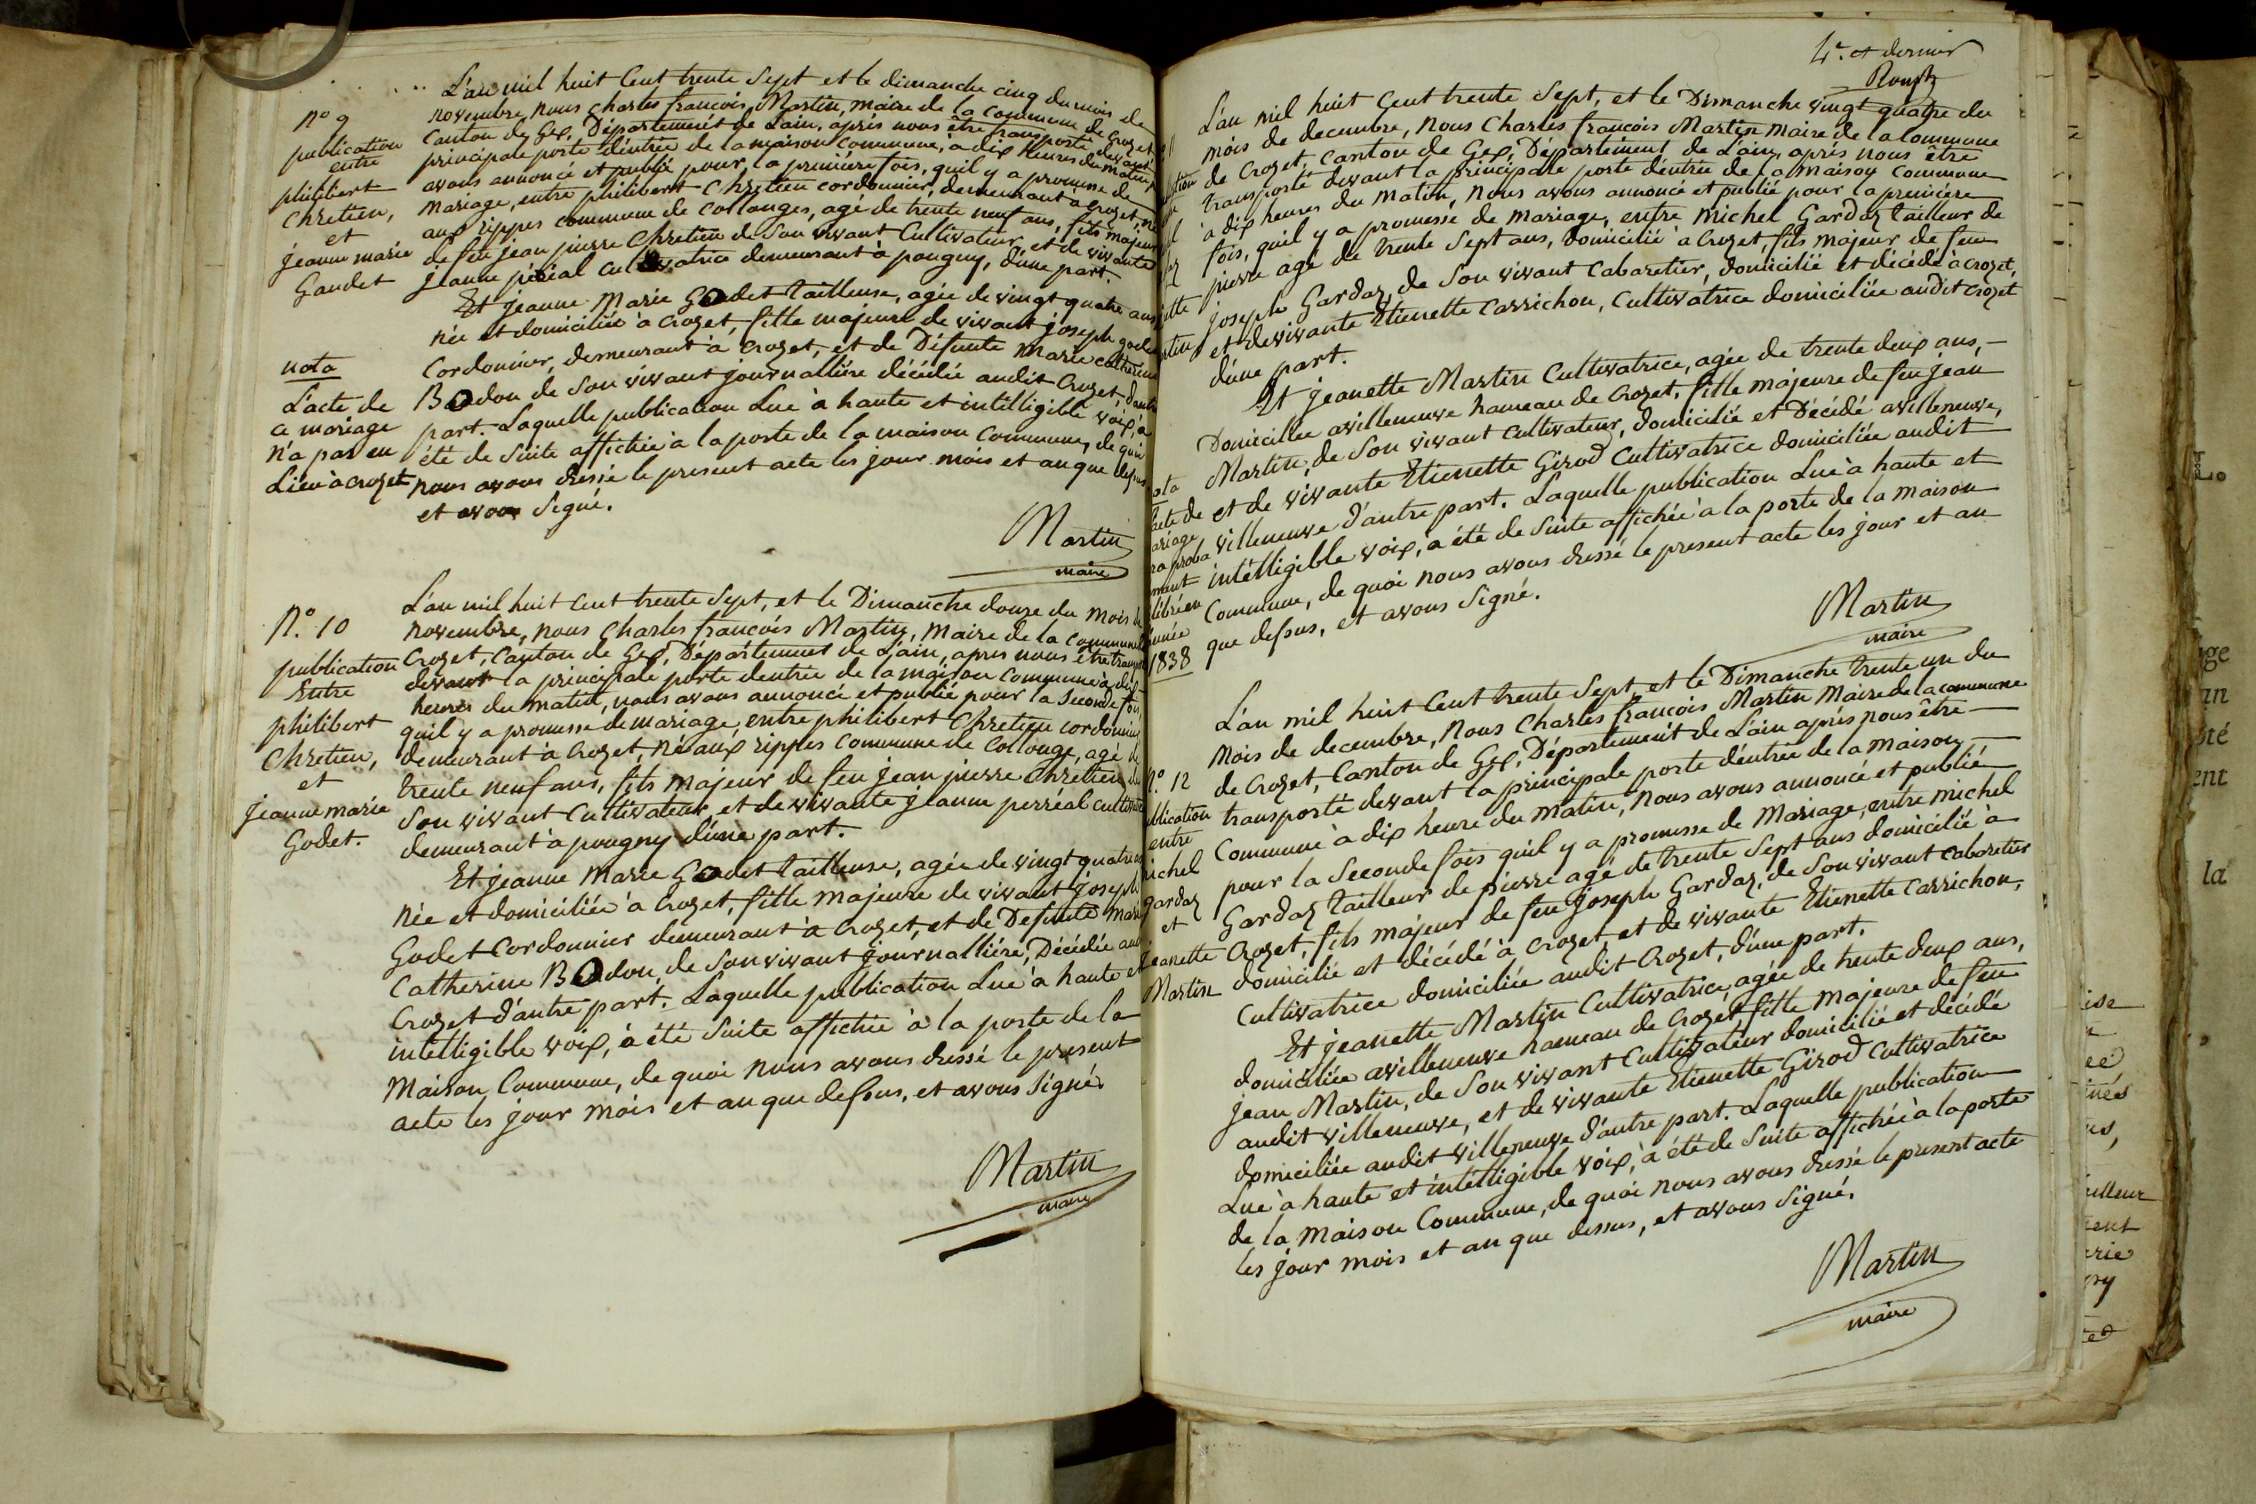 L'an mil huit Cent trente Sept et le dimanche cinq du mois de
novembre, nous charles françois Martin, maire de la commune de Crozet
Canton de Gex, Département de Lain, après nous être transporté devant
principale porte d'entrée de la maison commune, à dix heures du matin,
avons annoncé et publié pour la première fois, quil y a promesse de
Mariage, entre philibert Chretien cordonnier, demeurant à Crozet, né
aux rippes commune de Collonges, agé de trente neuf ans, fils majeur
de feu jean pierre Chretien de Son vivant Cultivateur, et de vivante
jeanne péréal cultivatrice demeurant à pougny, d'une part.
Et jeanne Marie Godet tailleuse, agée de vingt quatre ans
née et domiciliée à Crozet, fille majeure de vivant joseph godet
Cordonnier, demeurant à Crozet, et de Défunte Marie catherine
Bodon de Son vivant journallière décédée audit Crozet, d'autre
part. Laquelle publication Lue à haute et intelligible voix, a
été de Suite affichée à la porte de la maison Commune, de quoi
nous avons dressé le present acte les jour mois et an que dessus
et avons Signé.
Martin
maire
n° 9
publication
entre
philibert
Chretien,
et
jeanne marie
Gaudet
nota
L'acte de
ce mariage
n'a pas eu
Lieu à crozet
L'an mil huit Cent trente Sept, et le Dimanche douze du mois de
novembre, nous charles françois Martin, Maire de la commune
Crozet, Canton de Gex, Département de Lain, apres nous être transporté
devant la principale porte dentrée de la maison commune à dix
heures du matin, nous avons annoncé et publié pour la Seconde fois,
quil y a promesse de mariage, entre philibert Chretien cordonnier
demeurant à Crozet, né aux rippes commune de Collonge, agé de
trente neuf ans, fils majeur de feu jean pierre Chretien de
Son vivant Cultivateur et de vivante jeanne perréal cultivatrice
demeurant à pougny d'une part.
Et jeanne Marie Godet tailleuse, agée de vingt quatre ans
née et domiciliée à Crozet, fille majeure de vivant joseph
Godet Cordonnier demeurant à Crozet, et de Défunte Marie
Catherine Bodon, de Son vivant journallière, Décédée audit
Crozet d'autre part. Laquelle publication Lue à haute et
intelligible voix, à été Suite affichée à la porte de la
Maison Commune, de quoi nous avons dressé le present
acte les jour mois et an que dessus, et avons Signé.
Martin
maire
N.° 10
publication
Entre
philibert
Chretien,
et
jeanne marie
Godet.
4.e et dernier
L'an mil huit Cent trente Sept, et le Dimanche vingt quatre du
mois de decembre, Nous Charles françois Martin Maire de la Commune
de Crozet, canton de Gex, Département de L'ain, après nous être
transporté devant la principale porte d'entrée de la Maison Commune
à dix heures du Matin, Nous avons annoncé et publié pour la première
fois, qu'il y a promesse de mariage, entre Michel Gardaz tailleur de
pierre agé de trente Sept ans, domicilié à Crozet, fils majeur de feu
joseph Gardaz, de Son vivant Cabaretier, domicilié et décédé à Crozet,
et de vivante Etienette Carrichon, Cultivatrice domiciliée audit Crozet
d'une part.
Et jeanette Martin Cultivatrice, agée de trente deux ans,
Domiciliée a villeneuve hameau de Crozet, fille majeure de feu jean
Martin, de Son vivant Cultivateur, domicilié et Décédé a villeneuve,
et de vivante Etienette Girod Cultivatrice domiciliée audit
villeneuve d'autre part. Laquelle publication Lue à haute et
intelligible voix, à été de Suite affichée à la porte de la Maison
Commune, de quoi nous avons dressé le present acte les jour et an
que dessus, et avons Signé.
Martin
maire
1838
L'an mil huit Cent trente Sept, et le Dimanche trente un du
Mois de decembre, Nous Charles françois Martin Maire de la commune
de Crozet, Canton de Gex, Département de L'ain après nous être
transporté devant la principale porte d'entrée de la Maison
Commune à dix heure du Matin, Nous avons annoncé et publié
pour la Seconde fois quil y a promesse de Mariage, entre michel
Gardaz tailleur de pierre agé de trente Sept ans domicilié à
Crozet, fils majeur de feu joseph Gardaz, de Son vivant Cabaretier
domicilié et décédé à Crozet, et de vivante Etienette Carrichon,
Cultivatrice domiciliée audit Crozet, d'une part.
Et jeanette Martin Cultivatrice, agée de trente deux ans,
domiciliée a villeneuve hameau de Crozet fille Majeure de feu
jean Martin, de Son vivant Cultivateur domicilié et décédé
audit villeneuve, et de vivante Etienette Girod Cultivatrice
domiciliée audit villeneuve d'autre part. Laquelle publication
Lue à haute et intelligible voix, à été de Suite affichée à la porte
de la Maison Commune, de quoi nous avons dressé le present acte
les jour mois et an que dessus, et avons Signé.
Martin
maire
N.° 12
publication
entre
michel
gardaz
et
jeanette
Martin